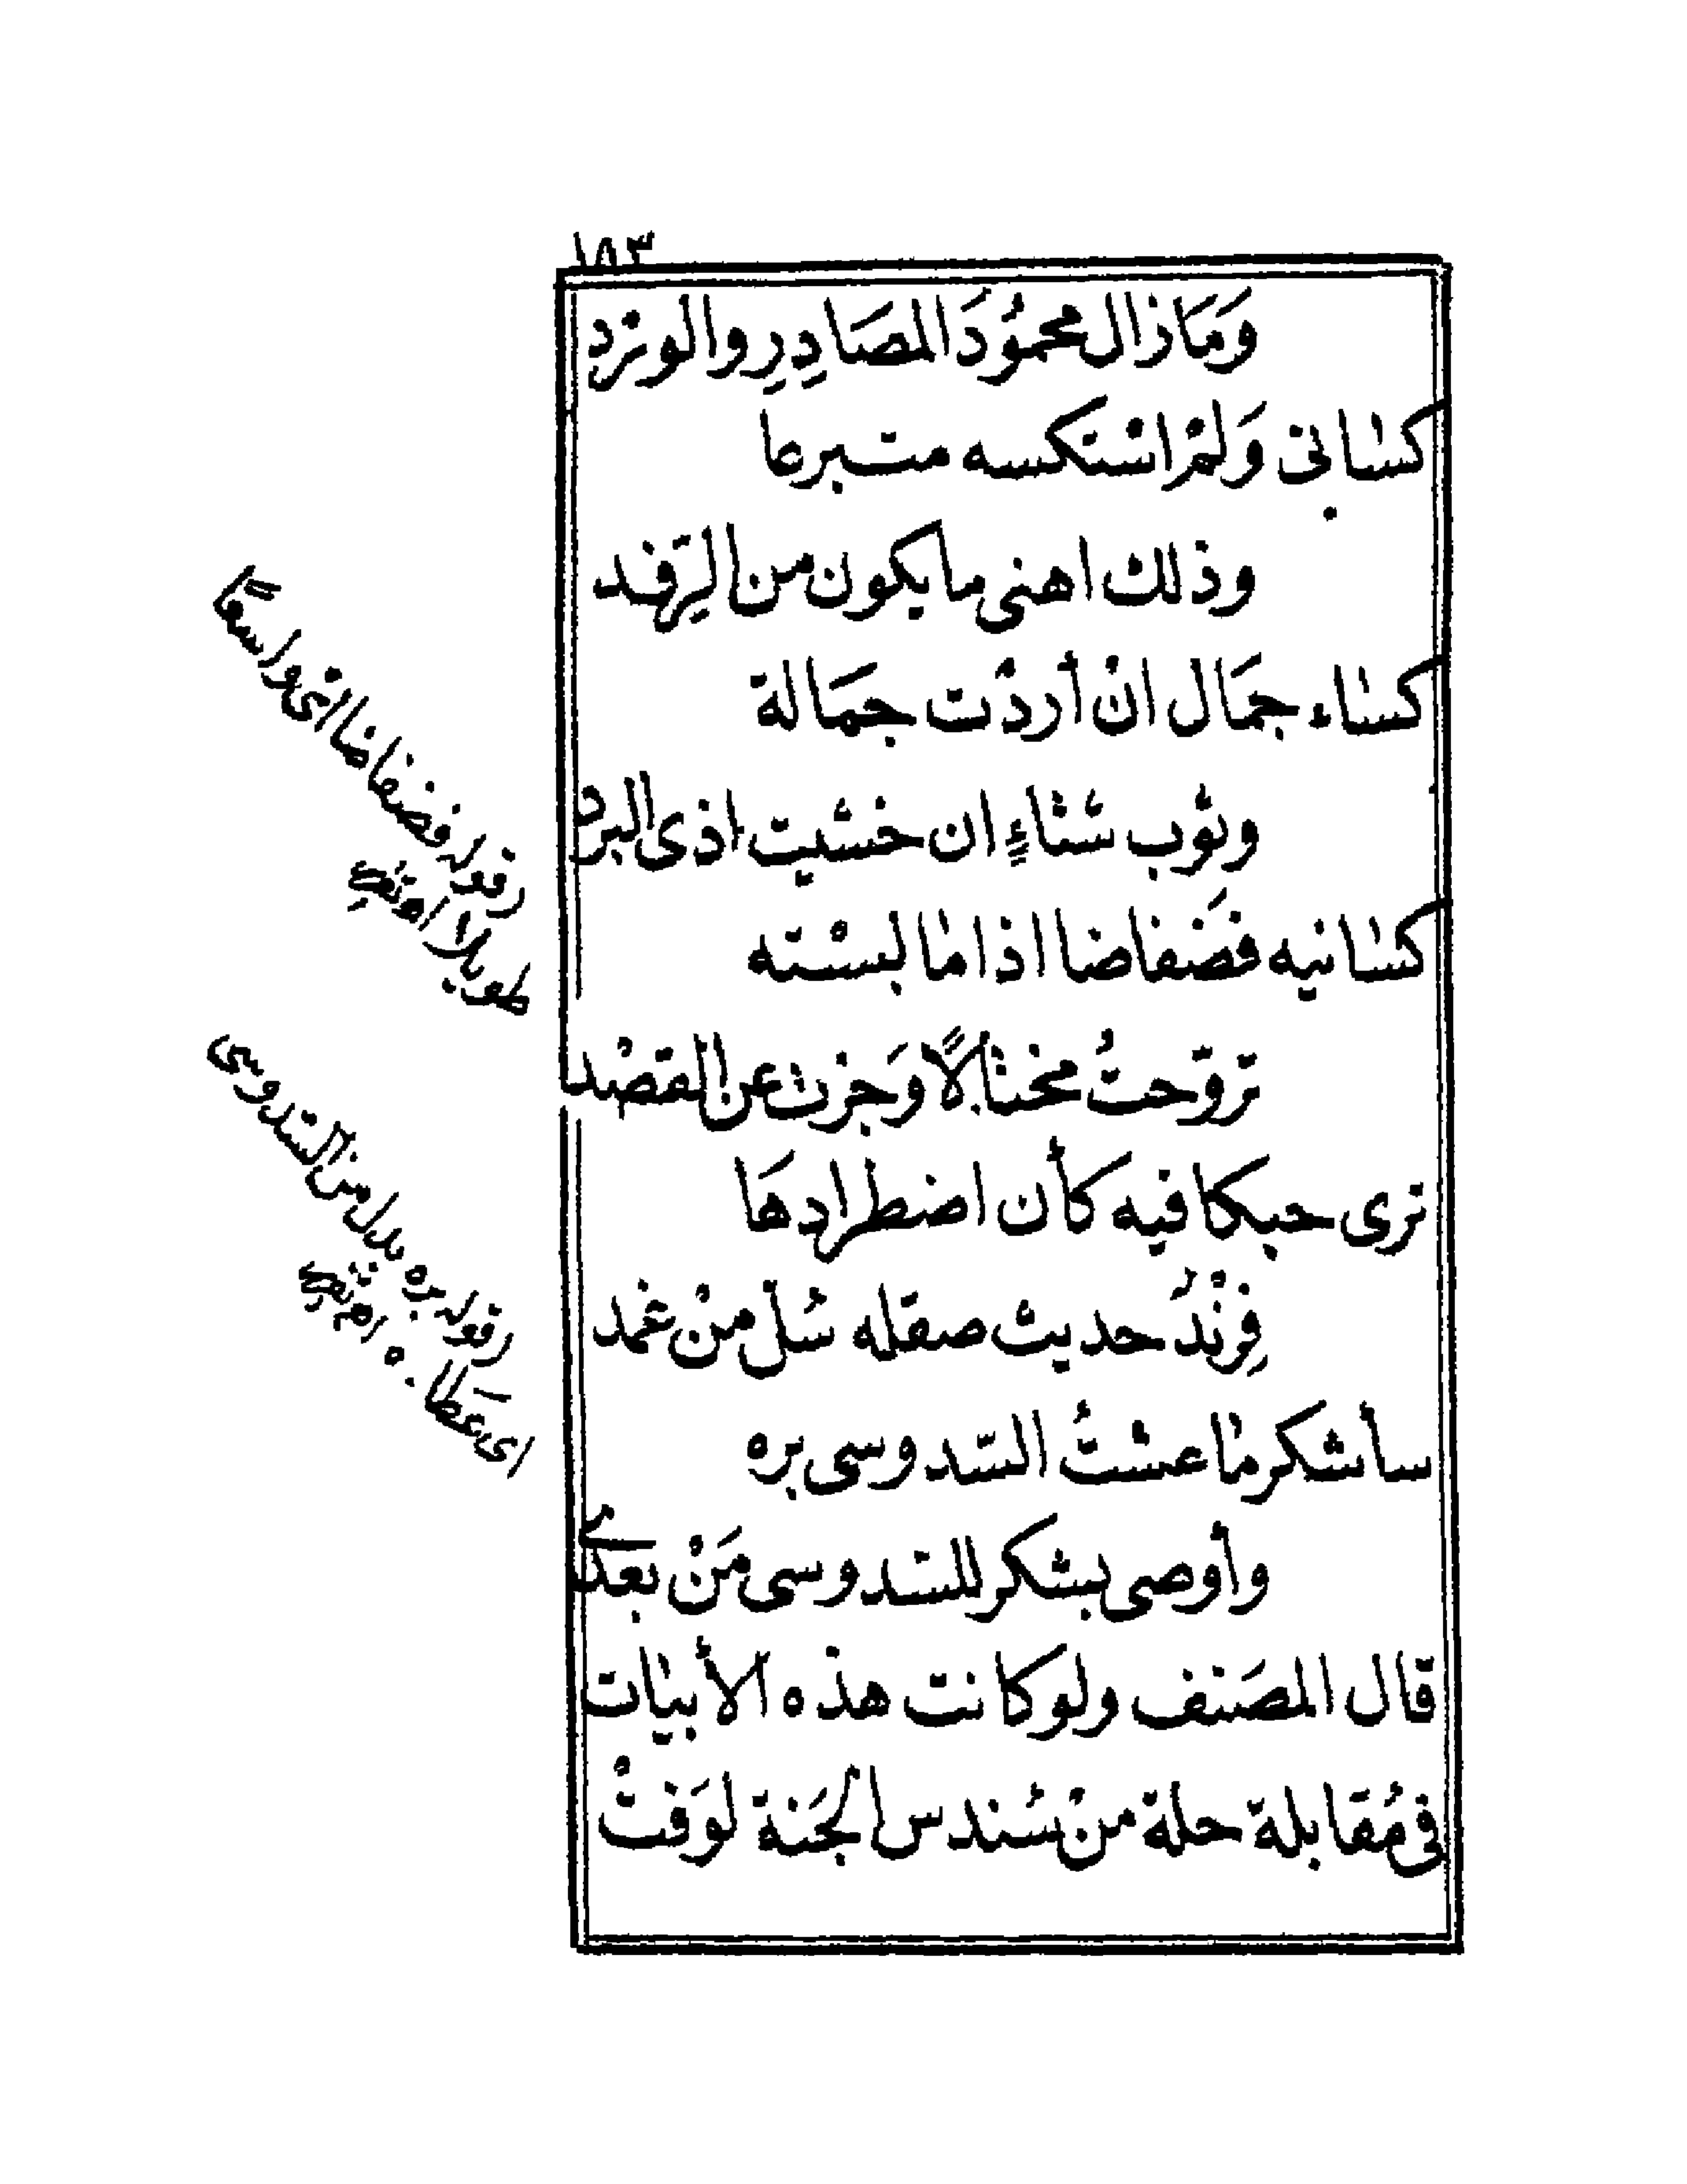 ١٥٣
وَمَا زال محمُودَ المصَادِرِ والورد
كسانى وَلمْ استكسه متبرعا
وذلك اهنى ما يكون من الرِفد
كساء جمَال انْ أردْت جمَالة
وثوب شتاءٍ ان خشيت اذى البرد
كسانيه فضَفاضا اذا ما لبسْته
تروّحتُ مختالًا وَجزت عن القصْد
ترى حبكا فيه كأن اضطرادهَا
فِرْندُ حديث صقله سُلّ منْ غمد
سأشكر ما عشتُ السّدوسى بره
وأوصى بشكر للسّدوسى مَنْ بعدى
قال المصَنف ولو كانت هذه الأبيات
فى مُقابلة حلة منْ سُندس الجَنة لوَفتْ
قوله فضفاضا اى واسعًا
طويلا اه
قوله بره بدل من السّدوسى
اى عَطا.ه اه